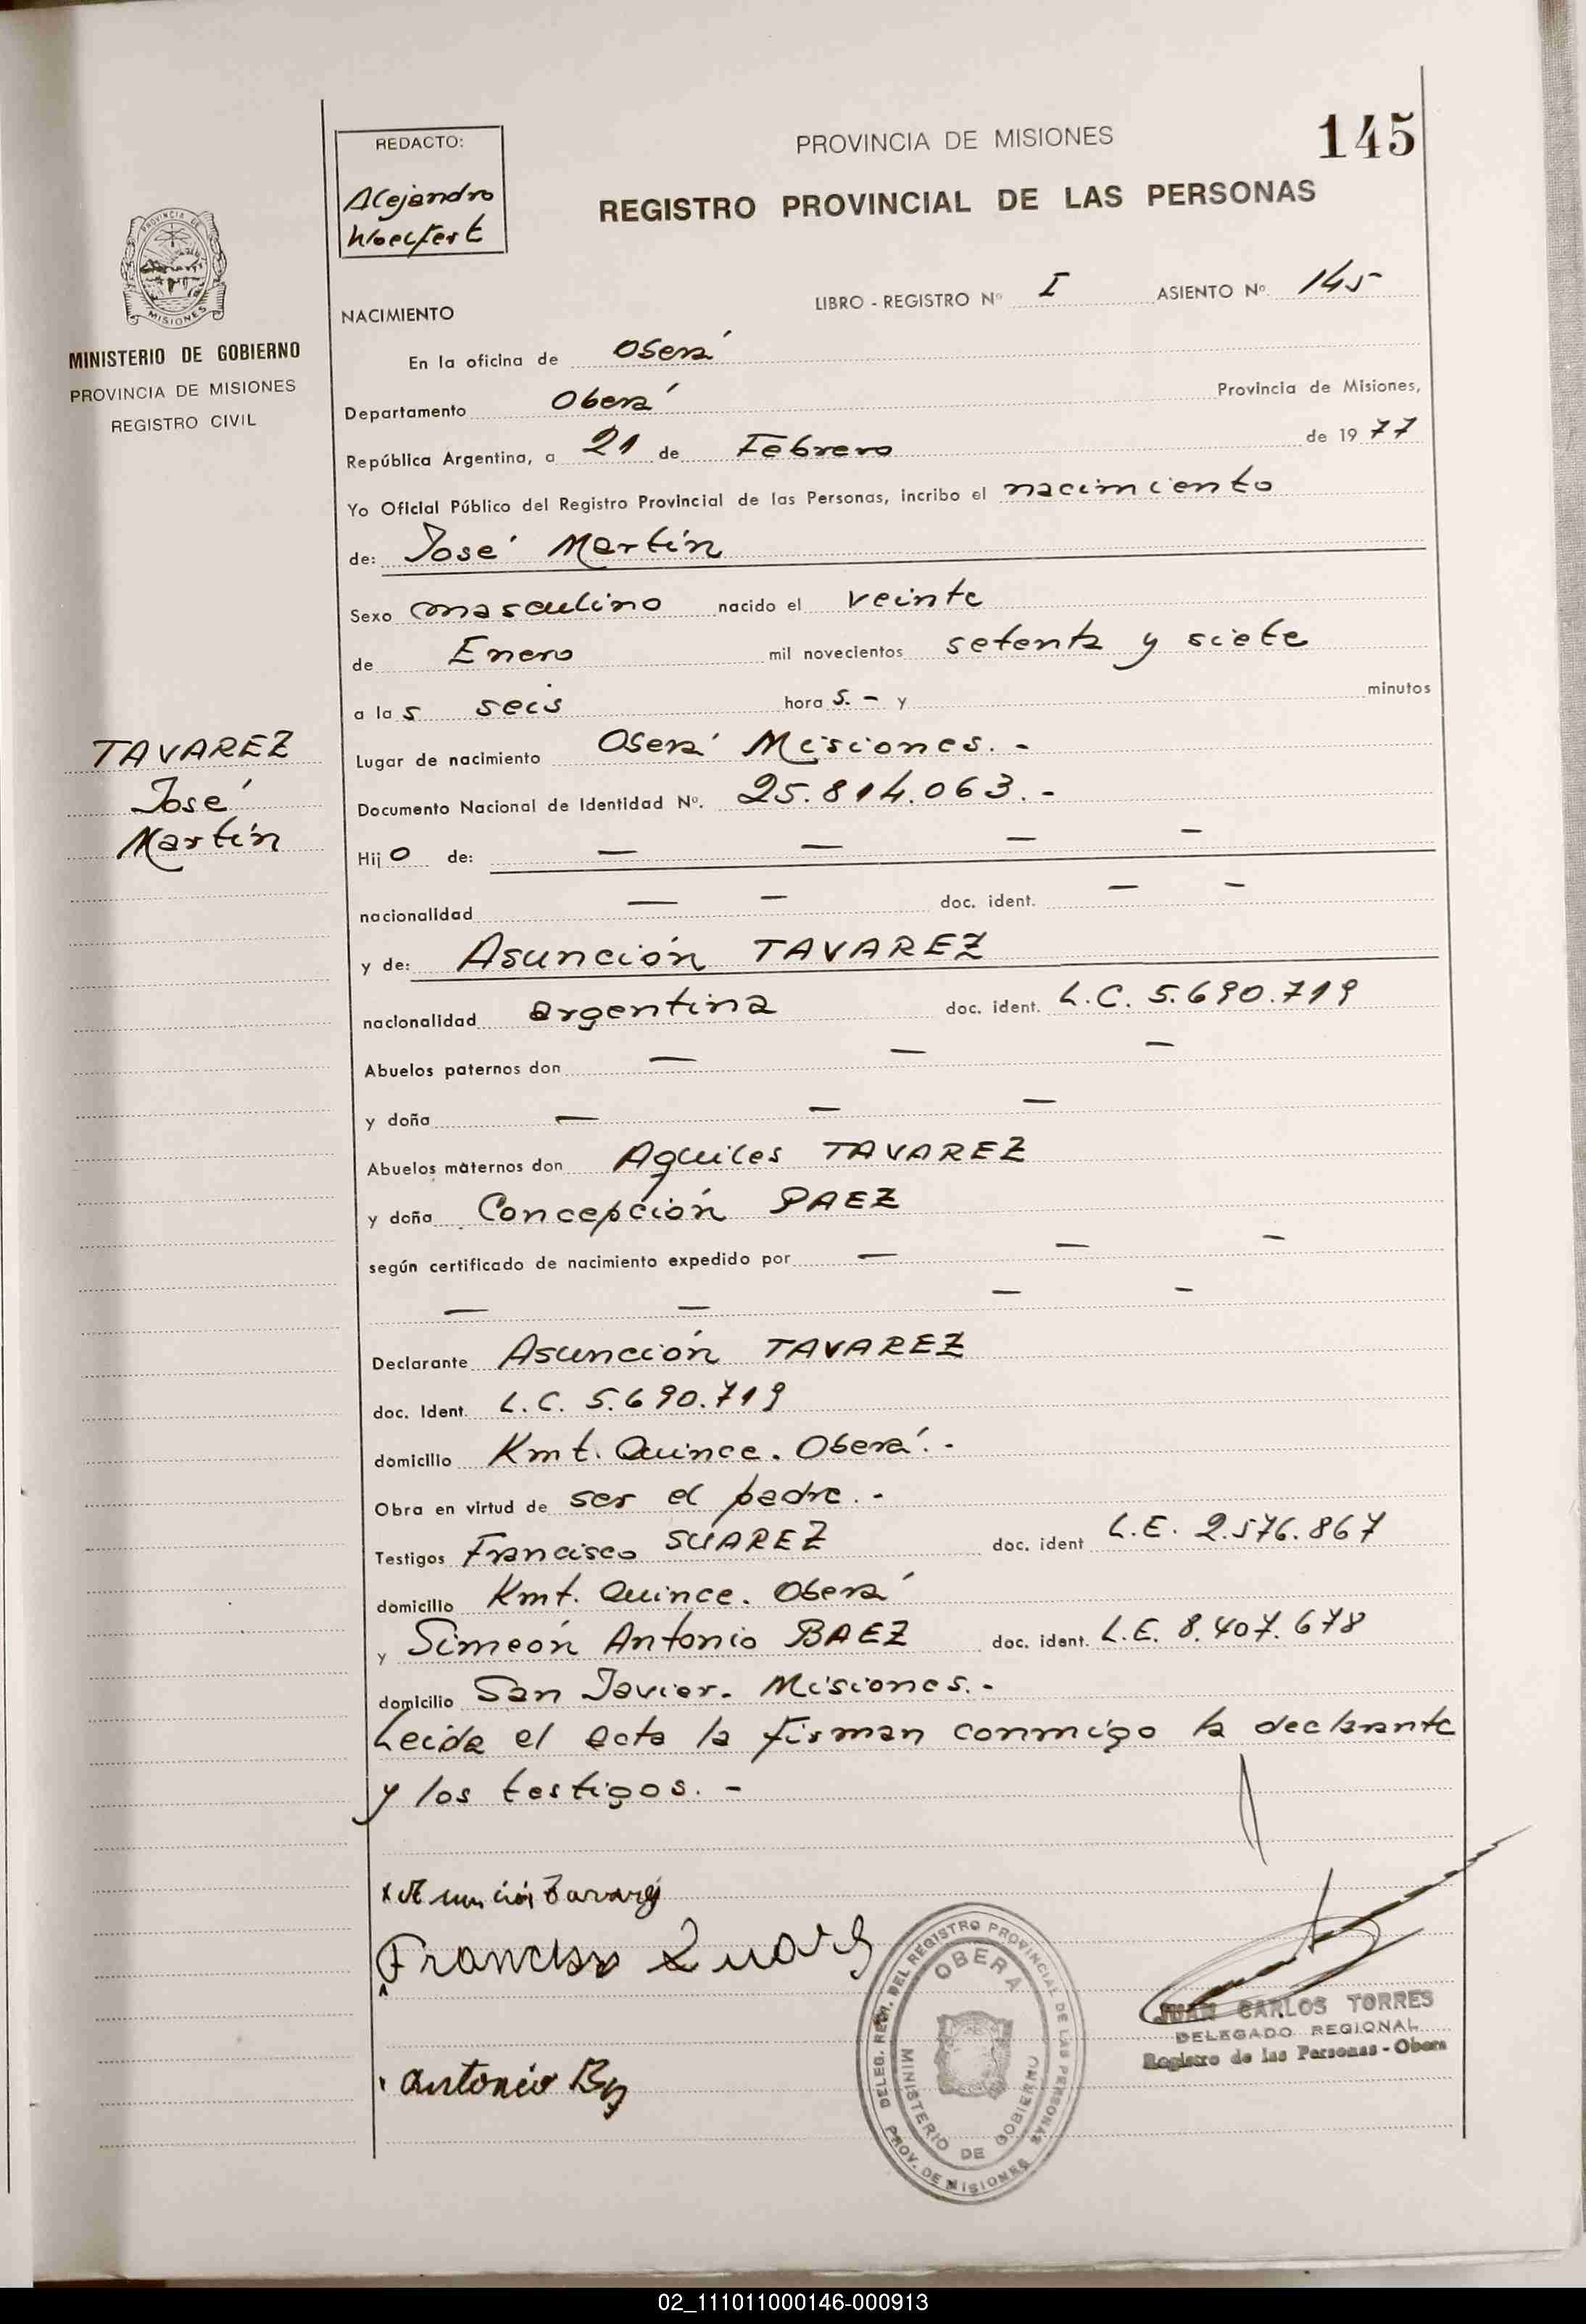 REDACTO:
Alejandro
Woelfert
PROVINCIA DE MISIONES
145
REGISTRO PROVINCIAL DE LAS PERSONAS
PROVINCIA DE
MISIONES
MINISTERIO DE GOBIERNO
PROVINCIA DE MISIONES
REGISTRO CIVIL
NACIMIENTO
LIBRO - REGISTRO Nº I ASIENTO Nº 145
En la oficina de Oberá
Departamento Oberá Provincia de Misiones,
República Argentina, a 21 de Febrero de 1977
Yo Oficial Público del Registro Provincial de las Personas, incribo el nacimiento
de: José Martín
Sexo masculino nacido el veinte
de Enero mil novecientos setenta y siete
a las seis horas.- y minutos
TAVAREZ
José
Martín
Lugar de nacimiento Oberá Misiones.-
Documento Nacional de Identidad Nº. 25.814.063.-
Hijo de: — — — —
nacionalidad — — doc. ident. — —
y de: Asunción TAVAREZ
nacionalidad argentina doc. ident. L.C. 5.690.719
Abuelos paternos don — — —
y doña — — —
Abuelos maternos don Aquiles TAVAREZ
y doña Concepción PAEZ
según certificado de nacimiento expedido por — — —
— — — —
Declarante Asunción TAVAREZ
doc. Ident. L.C. 5.690.719
domicilio Kmt. Quince. Oberá.-
Obra en virtud de ser el padre.-
Testigos Francisco SUAREZ doc. ident L.E. 2.576.867
domicilio Kmt. Quince. Oberá
y Simeón Antonio BAEZ doc. ident. L.E. 8.407.678
domicilio San Javier. Misiones.-
Leida el acta la firman conmigo la declarante
y los testigos.-
x Asunción Tavarez
Francisco Suarez
Antonio Bz
DELEG. REGI. DEL REGISTRO PROVINCIAL DE LAS PERSONAS
OBERA
MINISTERIO DE GOBIERNO
PROV. DE MISIONES
JUAN CARLOS TORRES
DELEGADO REGIONAL
Registro de las Personas - Obera
02_111011000146-000913